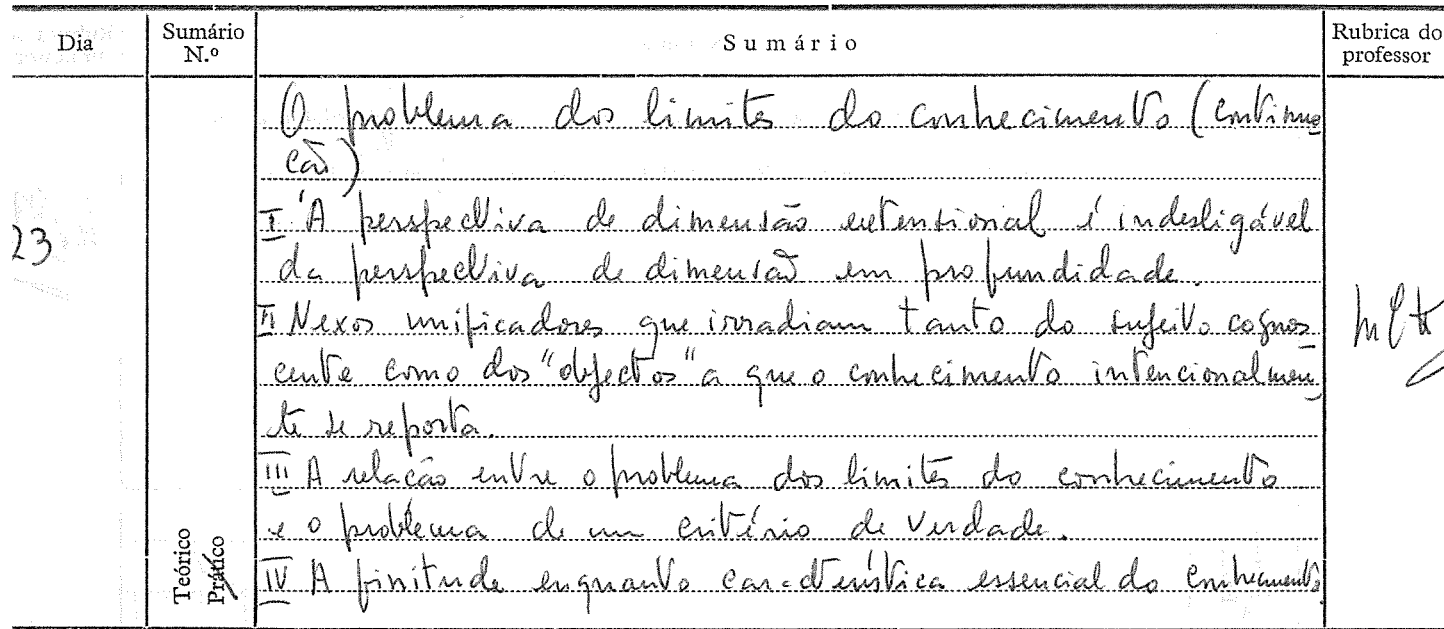 Dia
Sumário N.º
Sumário
Rubrica do professor
O problema dos limites do conhecimento (continua
ção)
23
I A perspectiva de dimensão extensional é indesligável
da perspectiva de dimensão em profundidade.
II Nexos unificadores que irradiam tanto do sujeito cognos
cente como dos "objectos" a que o conhecimento intencionalmen
te se reporta.
III A relação entre o problema dos limites do conhecimento
e o problema de um critério de verdade.
Teórico
Prático
IV A finitude enquanto característica essencial do conhecimento